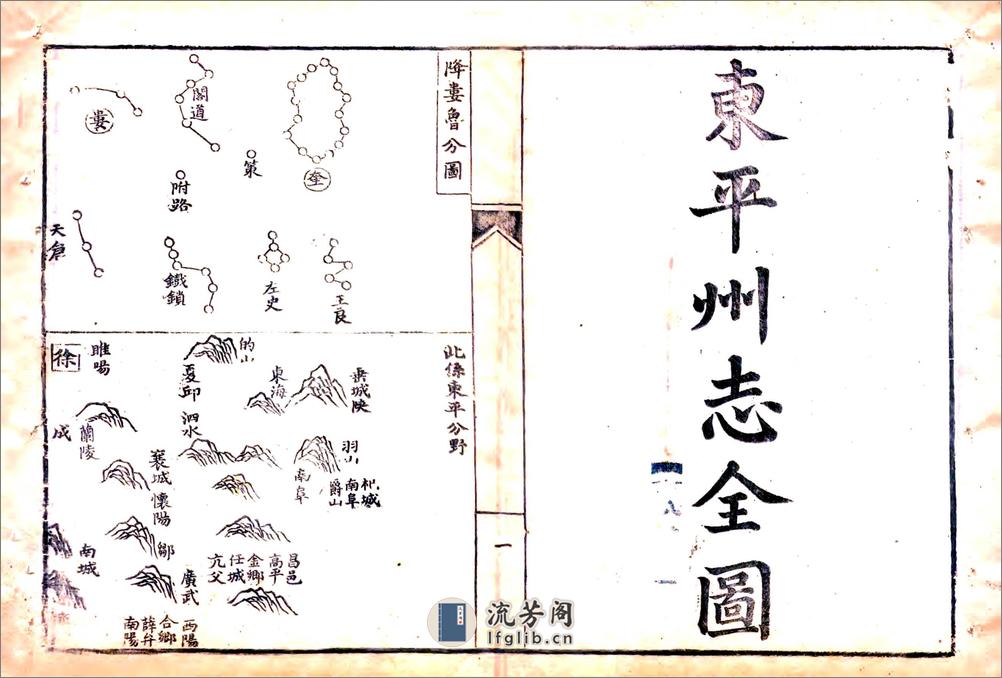 東平州志全圖
一
降婁魯分圖
奎
策
閣道
附路
婁
王良
左史
鐵鎖
天倉
此係東平分野
的山
東海
夏邱
泗水
睢陽
徐
蘭陵
成
羽山
杞城
南阜
爵山
南阜
襄城
懷陽
鄒
南城
昌邑
高平
金鄉
任城
亢父
廣武
西陽
合鄉
薛弁
南陽
流芳阁
lfglib.cn